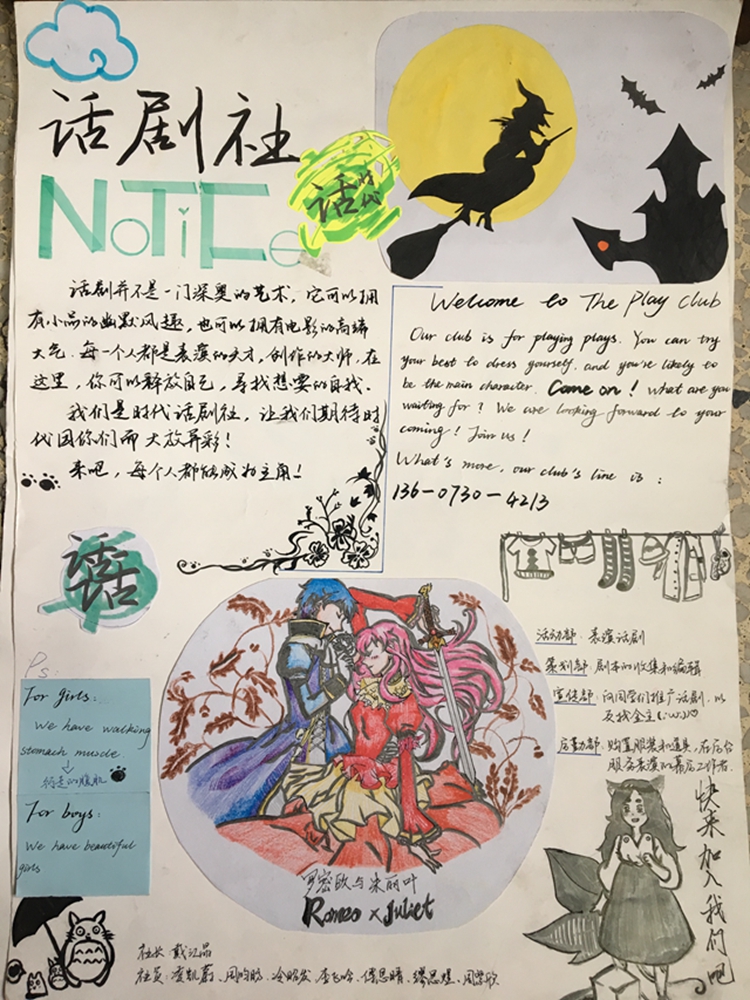 话剧社
NoTiCe
话时代
话剧并不是一门深奥的艺术，它可以拥
有小品的幽默风趣，也可以拥有电影的高端
大气。每一个人都是表演的天才，创作的大师，在
这里，你可以释放自己，寻找想要的自我。
我们是时代话剧社，让我们期待时
代因你们而大放异彩！
来吧，每个人都能成为主角！
Welcome to The Play Club
Our club is for playing plays. You can try
your best to dress yourself, and you're likely to
be the main character. Come on! what are you
waiting for? We are looking forward to your
coming! Join us!
What's more, our club's line is:
136-0730-4213
话
Ps:
For girls:
We have walking
stomach muscle
行走的腹肌
For boys:
We have beautiful
girls
活动部：表演话剧
策划部：剧本的收集和编辑
宣传部：向同学们推广话剧，以
及找金主(:з」∠)
后勤部：购置服装和道具，在后台
服务表演的幕后工作者.
快来加入我们吧
罗密欧与朱丽叶
Romeo x Juliet
社长：戴
社员：